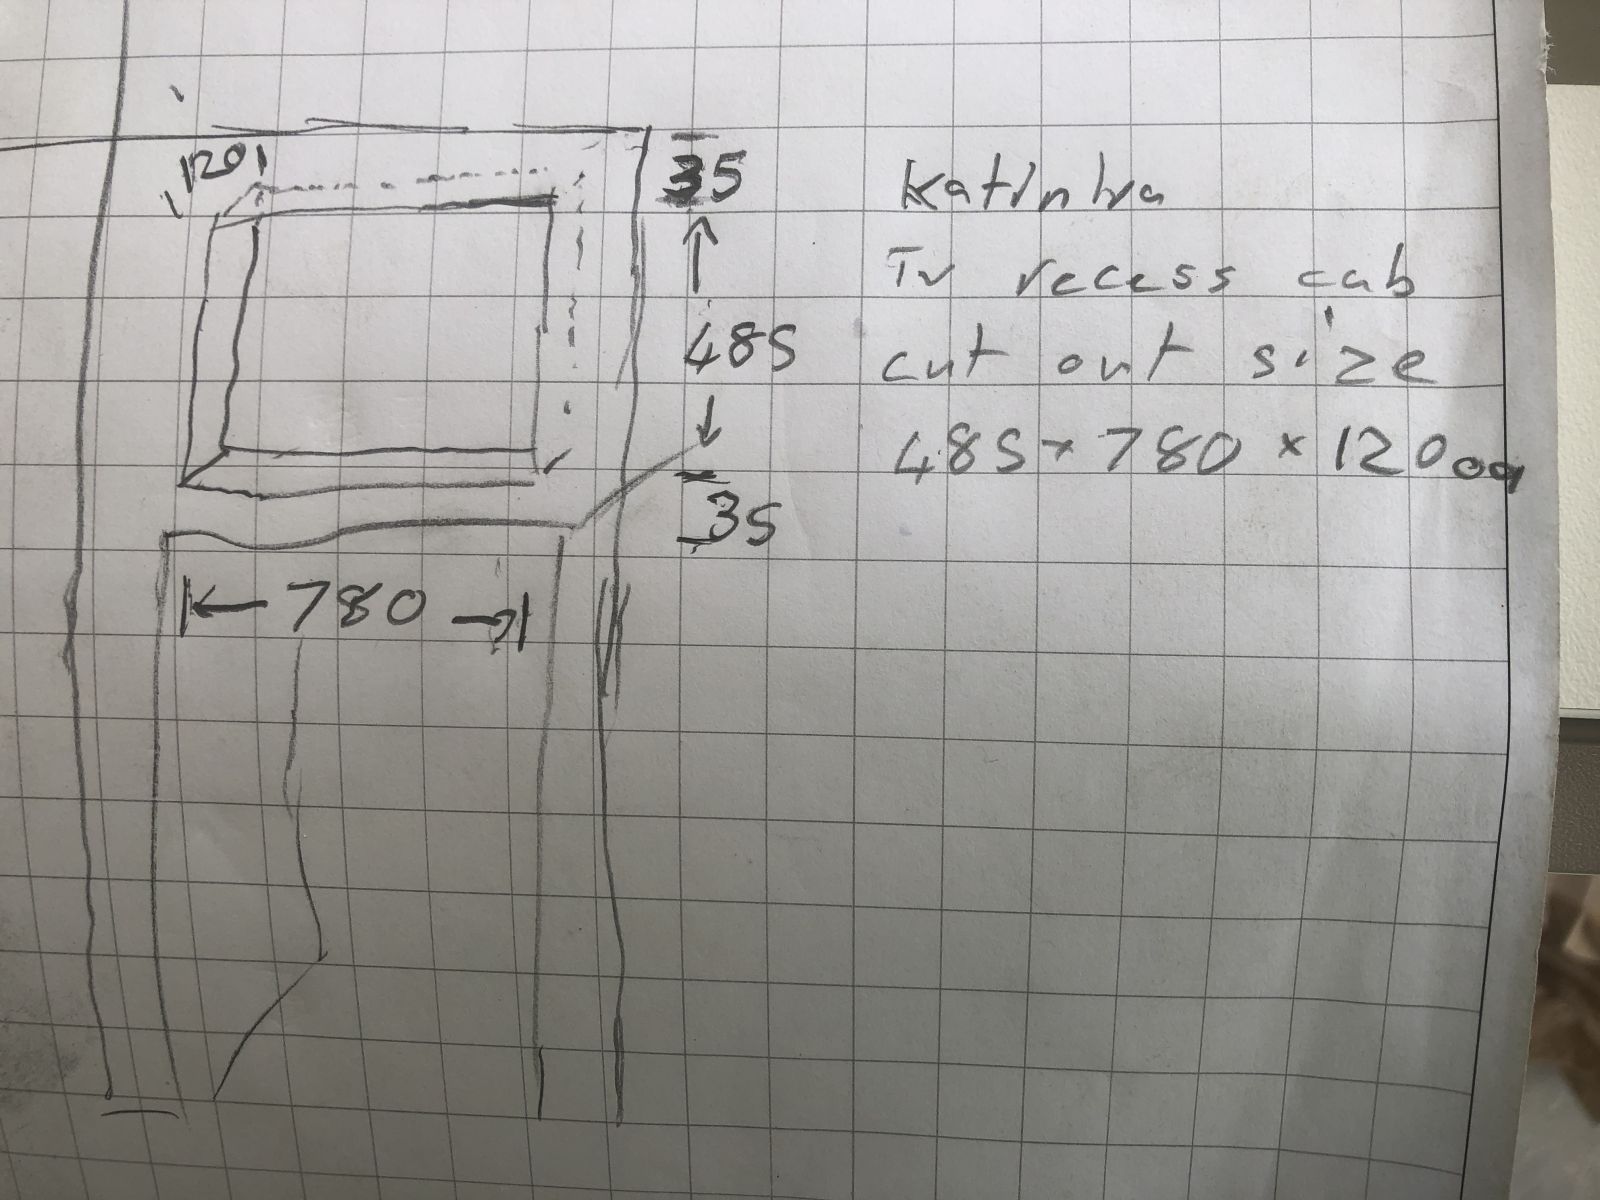 120
35
485
35
780
Katinka
Tv recess cab
cut out size
485 x 780 x 120